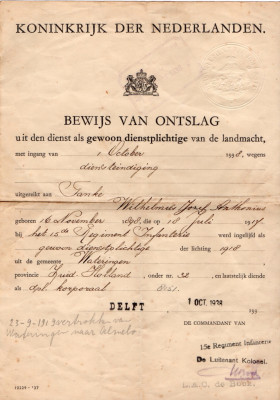 KONINKRIJK DER NEDERLANDEN.
BEWIJS VAN ONTSLAG
uit den dienst als gewoon dienstplichtige van de landmacht,
met ingang van 1 October 1938, wegens
diensteindiging
uitgereikt aan Janke
Wilhelmus Jozef Anthonius
geboren 16 November 1898, die op 18 Juli 1917
bij het 15de Regiment Infanterie werd ingelijfd als
gewoon dienstplichtige der lichting 1918
uit de gemeente Wateringen
provincie Zuid-Holland, onder nr. 32, en laatstelijk diende
als dpl. korporaal
DELFT 1 OCT. 1938 193
23-9-1919 vertrokken van
Wateringen naar Almelo
DE COMMANDANT VAN
15e Regiment Infanterie
De Luitenant Kolonel,